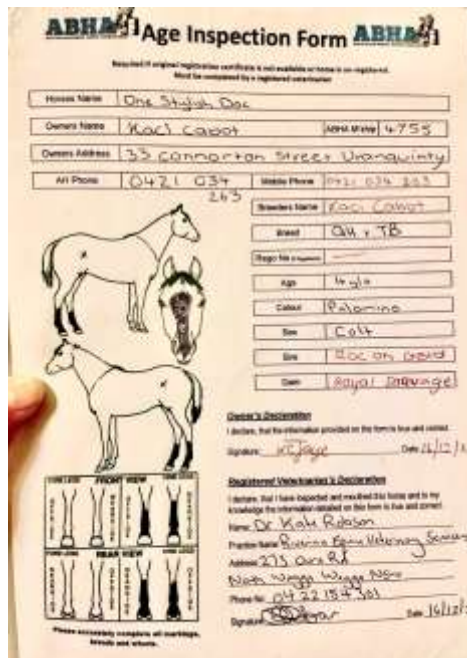 ABHA Age Inspection Form ABHA
Required if original registration certificate is not available or horse is un-registered.
Must be completed by a registered veterinarian
Horses Name One Stylish Doc
Owners Name Kaci Cabot ABHA M'ship 4755
Owners Address 33 Connorton Street Uranquinty
AH Phone 0421 034 263 Mobile Phone 0421 034 263
Breeders Name Kaci Cabot
Breed QH x TB
Rego No
Age 4 y/o
Colour Palomino
Sex Colt
Sire Doc on Gold
Dam Royal
Owner's Declaration
I declare, that the information provided on this form is true and correct.
Signature: Date 16/12/
Registered Veterinarian's Declaration
I declare, that I have inspected and this horse and to my
knowledge the information detailed on this form is true and correct
Name: Dr Kate Robson
Practice Name Riverina Equine Veterinary
Address 275 Rd
North Wagga Wagga NSW
Phone No 04 22 154 301
Signature Date 16/12/
FRONT VIEW
REAR VIEW
Please accurately complete all markings,
brands and whorls.